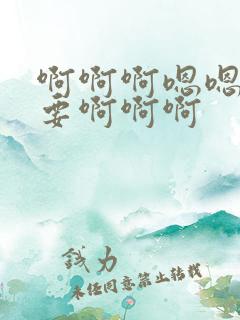 啊啊啊嗯嗯
要啊啊啊
钱力
未经同意禁止转载